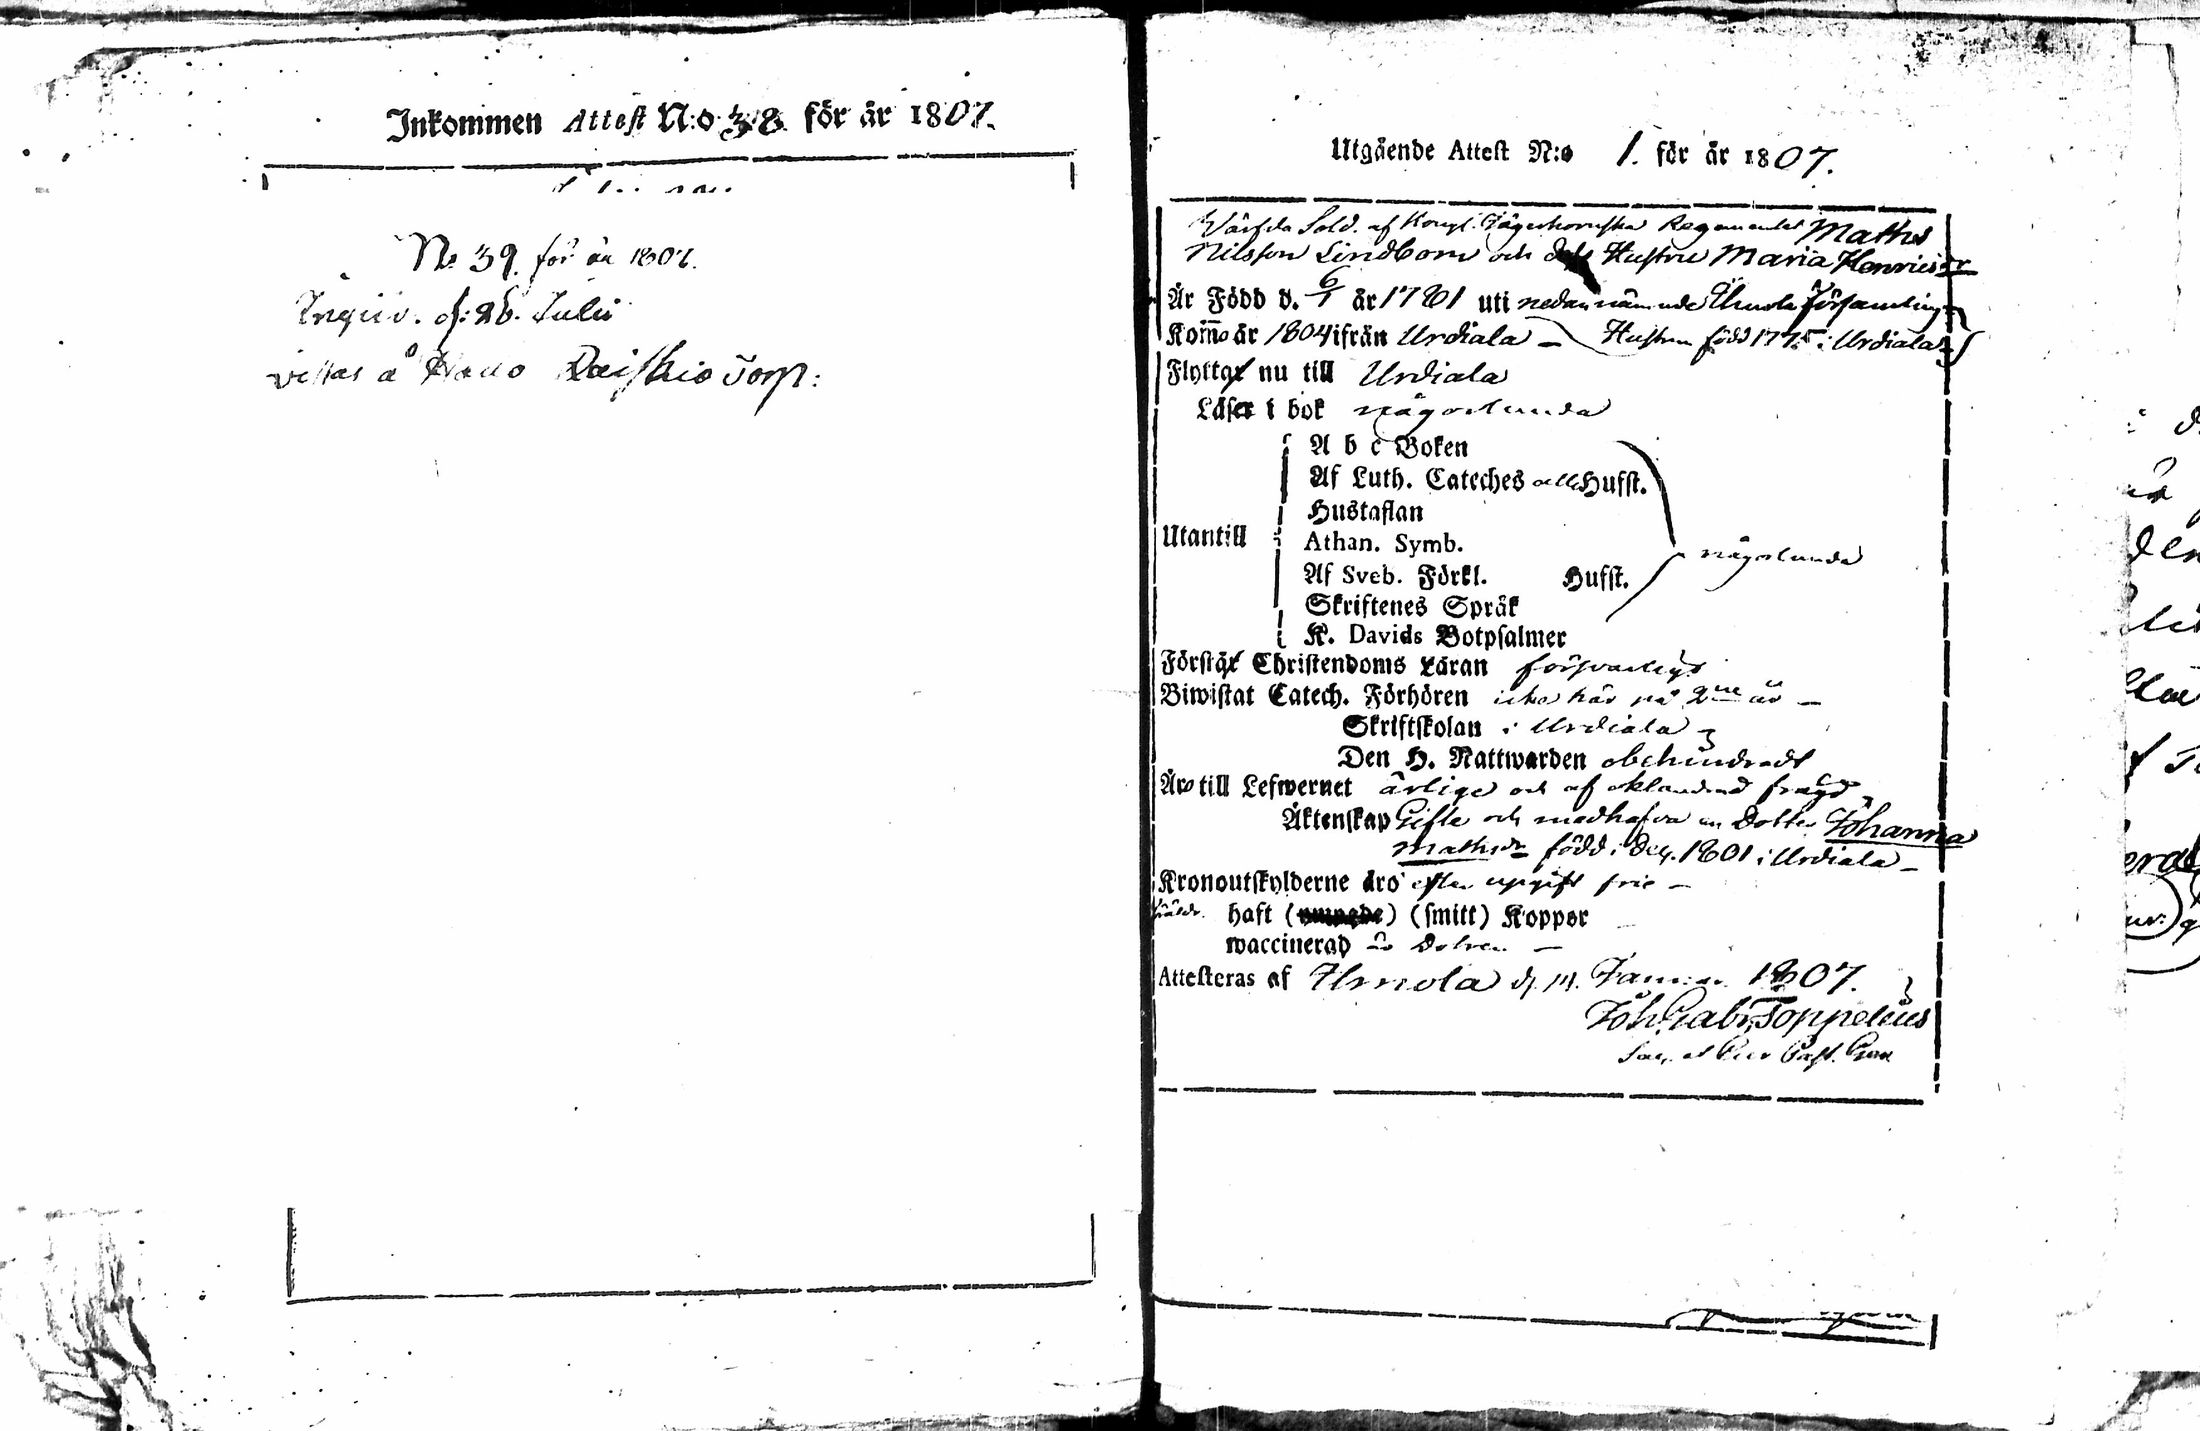 Inkommen Attest N:o 38. för år 1807.
No 39. för år 1807.
Ingiv. d: 26. Julii
vistas å Raiskio Torp:
Utgående Attest N:o 1. för år 1807.
Värfda Sold. af Kongl. Jägerhornska Regementet Mathes
Nilsson Lindbom och dess Hustru Maria Henricsdr
År Född d. 6/1 år 1781 uti nedannämnde Församling
Komne år 1804 ifrån Urdiala — Hustrun född 1775 i Urdiala
Flytta nu till Urdiala
Läser i bok någorlunda
A b c Boken
Af Luth. Cateches alla Hufst.
Hustaflan
Utantill
Athan. Symb.
någorlunda
Af Sveb. Förkl. Hufst.
Skriftenes Språk
K. Davids Botpsalmer
Förstå Christendoms Läran försvarligt
Biwistat Catech. Förhören icke här på 2ne år —
Skriftskolan i Urdiala
Den H. Nattwarden obehindradt
Äro till Lefwernet ärlige och af oklandrad frägd
Äktenskap Gifte och medhafva en Dotter Johanna
Mathsdr född i Dec. 1801 i Urdiala —
Kronoutskylderne äro efter upgift frie —
haft (smitt) Koppor
waccinerad är Dottren —
Attesteras af Urnola d. Januar. 1807.
Joh. Gabr. Toppelius